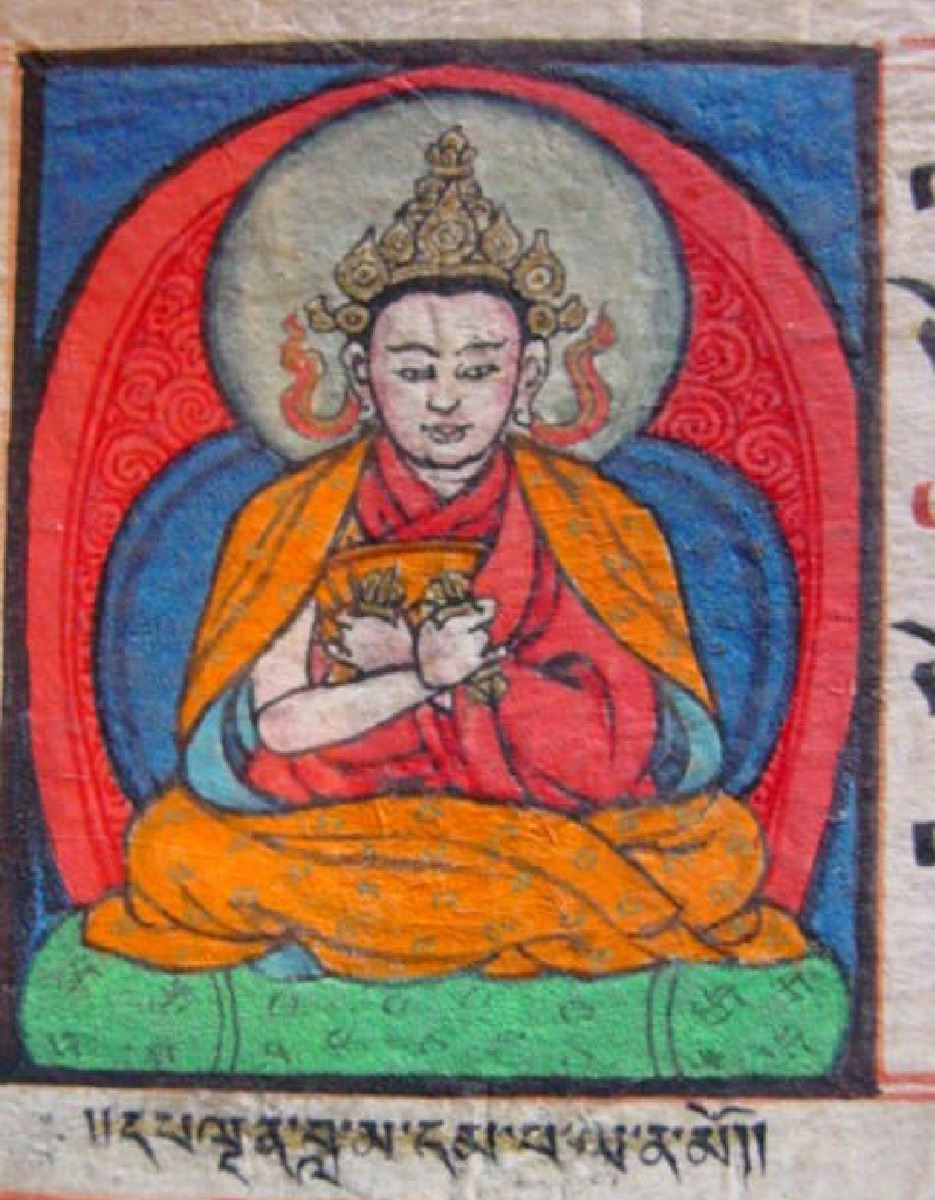 །།དཔལྡན་བླ་མ་དམ་པ་ལ་ན་མོ།།